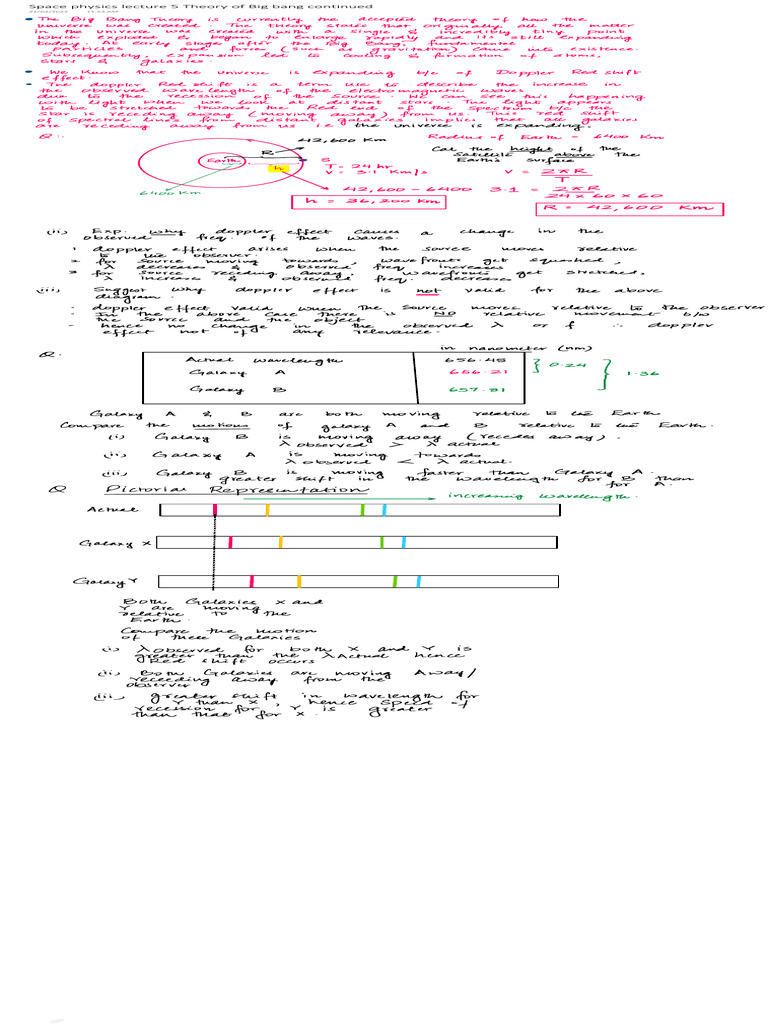 Space physics lecture 5 Theory of Big bang continued
The Big Bang Theory is currently the accepted theory of how the
universe was created. The theory states that originally all the matter
in the universe was created with a single & incredibly tiny point
which exploded & began to enlarge rapidly and its still expanding
today. At early stage after the Big Bang, fundamental
particles and force (such as gravitation) came into existence.
Subsequently, expansion led to cooling & formation of atoms,
stars & galaxies.
We know that the universe is expanding b/c of Doppler Red shift
effect.
- The doppler Red shift is a term use to describe the increase in
the observed wave length of the electromagnetic waves
due to the recession of the source. We can see this happening
with light when we look at distant stars. The light appears
to be stretched towards the Red end of the spectrum b/c the
star is receding away (moving away) from us. This red shift
of spectral lines from distant galaxies implies that all galaxies
are receding away from us i.e the universe is expanding.
Q:-
42,600 Km
Radius of Earth = 6400 Km
R
Earth
S
h
Cal the height of the
satellite above the
Earth's surface
T = 24 hr
v = 3.1 Km/s
v = 2πR
T
6400 Km
42,600 - 6400
3.1 = 2πR
24 x 60 x 60
h = 36,200 Km
R = 42,600 Km
(ii) Exp. why doppler effect causes a change in the
observed freq. of the waves.
1 doppler effect arises when the source moves relative
to the observer.
2 for source moving towards, wavefronts get squashed,
λ decreases & observed freq increases
3 for source receding away, wavefronts get stretched,
λ increase & observed freq. decrease
(iii) Suggest why doppler effect is not valid for the above
diagram.
- doppler effect valid when the source moves relative to the observer
- In the above case there is NO relative movement b/w
the source and the object
- hence no change in the observed λ or f ∴ doppler
effect not of any relevance.
Q.
in nanometer (nm)
Actual wavelength 656.45
Galaxy A 656.21
Galaxy B 657.81
0.24
1.36
Galaxy A & B are both moving relative to the Earth
Compare the motions of galaxy A and B relative to the Earth.
(i) Galaxy B is moving away (recedes away).
λ observed > λ actual
(ii) Galaxy A is moving towards
λ observed < λ actual.
(iii) Galaxy B is moving faster than Galaxy A.
greater shift in the wavelength for B than
for A.
Q Pictorial Representation
increasing wavelength.
Actual
Galaxy X
Galaxy Y
Both Galaxies X and
Y are moving
relative to the
Earth.
Compare the motion
of these Galaxies
(i) λ observed for both X and Y is
greater than the λ Actual hence
Red shift occurs
(ii) Both Galaxies are moving Away/
receeding away from the
observer
(iii) greater shift in wavelength for
Y than X, hence speed of
recession for Y is greater
than that for X.